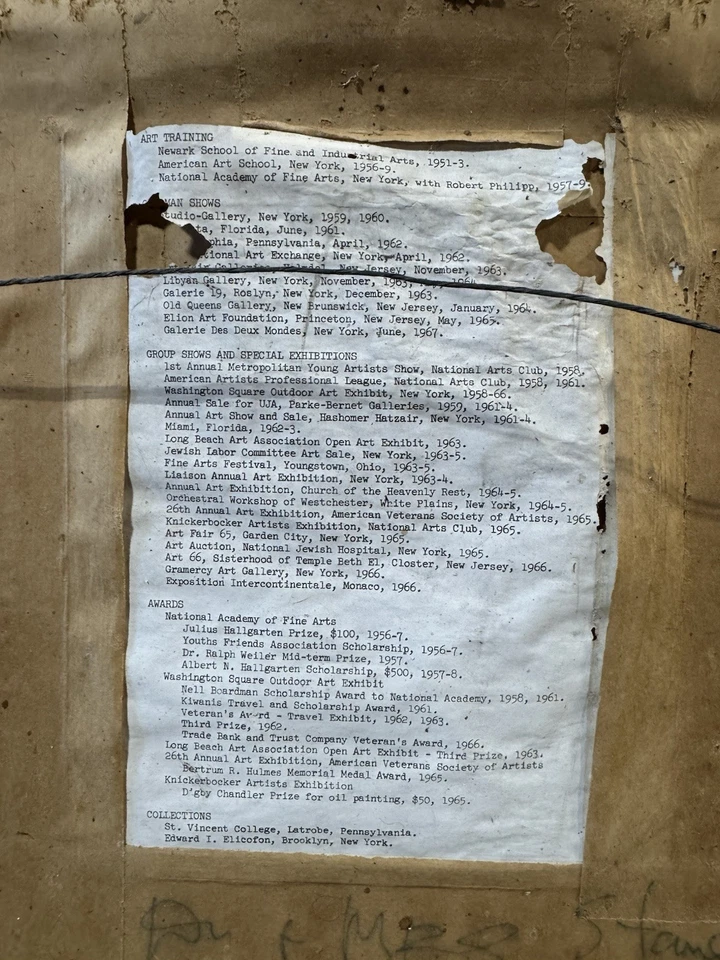 ART TRAINING
Newark School of Fine and Industrial Arts, 1951-3.
American Art School, New York, 1956-9.
National Academy of Fine Arts, New York, with Robert Philipp, 1957-9.
MAN SHOWS
tudio-Gallery, New York, 1959, 1960.
ta, Florida, June, 1961.
phia, Pennsylvania, April, 1962.
tional Art Exchange, New York, April, 1962.
New Jersey, November, 1963.
Libyan Gallery, New York, November, 1963, 1964.
Galerie 19, Roslyn, New York, December, 1963.
Old Queens Gallery, New Brunswick, New Jersey, January, 1964.
Elion Art Foundation, Princeton, New Jersey, May, 1965.
Galerie Des Deux Mondes, New York, June, 1967.
GROUP SHOWS AND SPECIAL EXHIBITIONS
1st Annual Metropolitan Young Artists Show, National Arts Club, 1958.
American Artists Professional League, National Arts Club, 1958, 1961.
Washington Square Outdoor Art Exhibit, New York, 1958-66.
Annual Sale for UJA, Parke-Bernet Galleries, 1959, 1961-4.
Annual Art Show and Sale, Hashomer Hatzair, New York, 1961-4.
Miami, Florida, 1962-3.
Long Beach Art Association Open Art Exhibit, 1963.
Jewish Labor Committee Art Sale, New York, 1963-5.
Fine Arts Festival, Youngstown, Ohio, 1963-5.
Liaison Annual Art Exhibition, New York, 1963-4.
Annual Art Exhibition, Church of the Heavenly Rest, 1964-5.
Orchestral Workshop of Westchester, White Plains, New York, 1964-5.
26th Annual Art Exhibition, American Veterans Society of Artists, 1965.
Knickerbocker Artists Exhibition, National Arts Club, 1965.
Art Fair 65, Garden City, New York, 1965.
Art Auction, National Jewish Hospital, New York, 1965.
Art 66, Sisterhood of Temple Beth El, Closter, New Jersey, 1966.
Gramercy Art Gallery, New York, 1966.
Exposition Intercontinentale, Monaco, 1966.
AWARDS
National Academy of Fine Arts
Julius Hallgarten Prize, $100, 1956-7.
Youths Friends Association Scholarship, 1956-7.
Dr. Ralph Weiler Mid-term Prize, 1957.
Albert N. Hallgarten Scholarship, $500, 1957-8.
Washington Square Outdoor Art Exhibit
Nell Boardman Scholarship Award to National Academy, 1958, 1961.
Kiwanis Travel and Scholarship Award, 1961.
Veteran's Award - Travel Exhibit, 1962, 1963.
Third Prize, 1962.
Trade Bank and Trust Company Veteran's Award, 1966.
Long Beach Art Association Open Art Exhibit - Third Prize, 1963.
26th Annual Art Exhibition, American Veterans Society of Artists
Bertrum R. Hulmes Memorial Medal Award, 1965.
Knickerbocker Artists Exhibition
D'gby Chandler Prize for oil painting, $50, 1965.
COLLECTIONS
St. Vincent College, Latrobe, Pennsylvania.
Edward I. Elicofon, Brooklyn, New York.